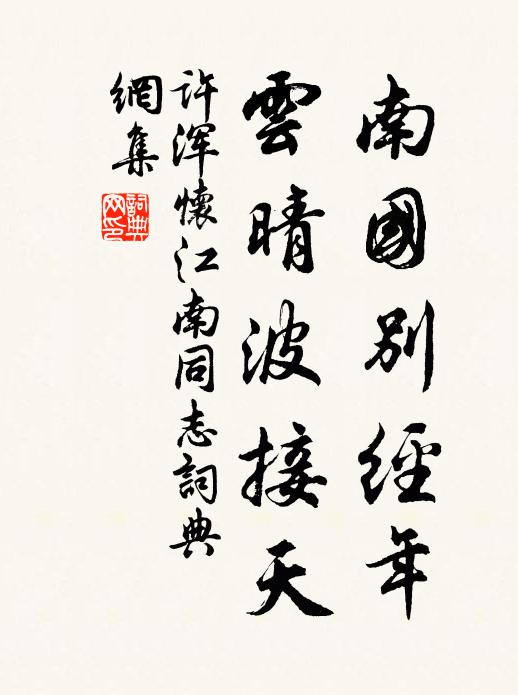 南國別經年
雲晴波接天
許渾懷江南同志詞典
網集
詞典
网印